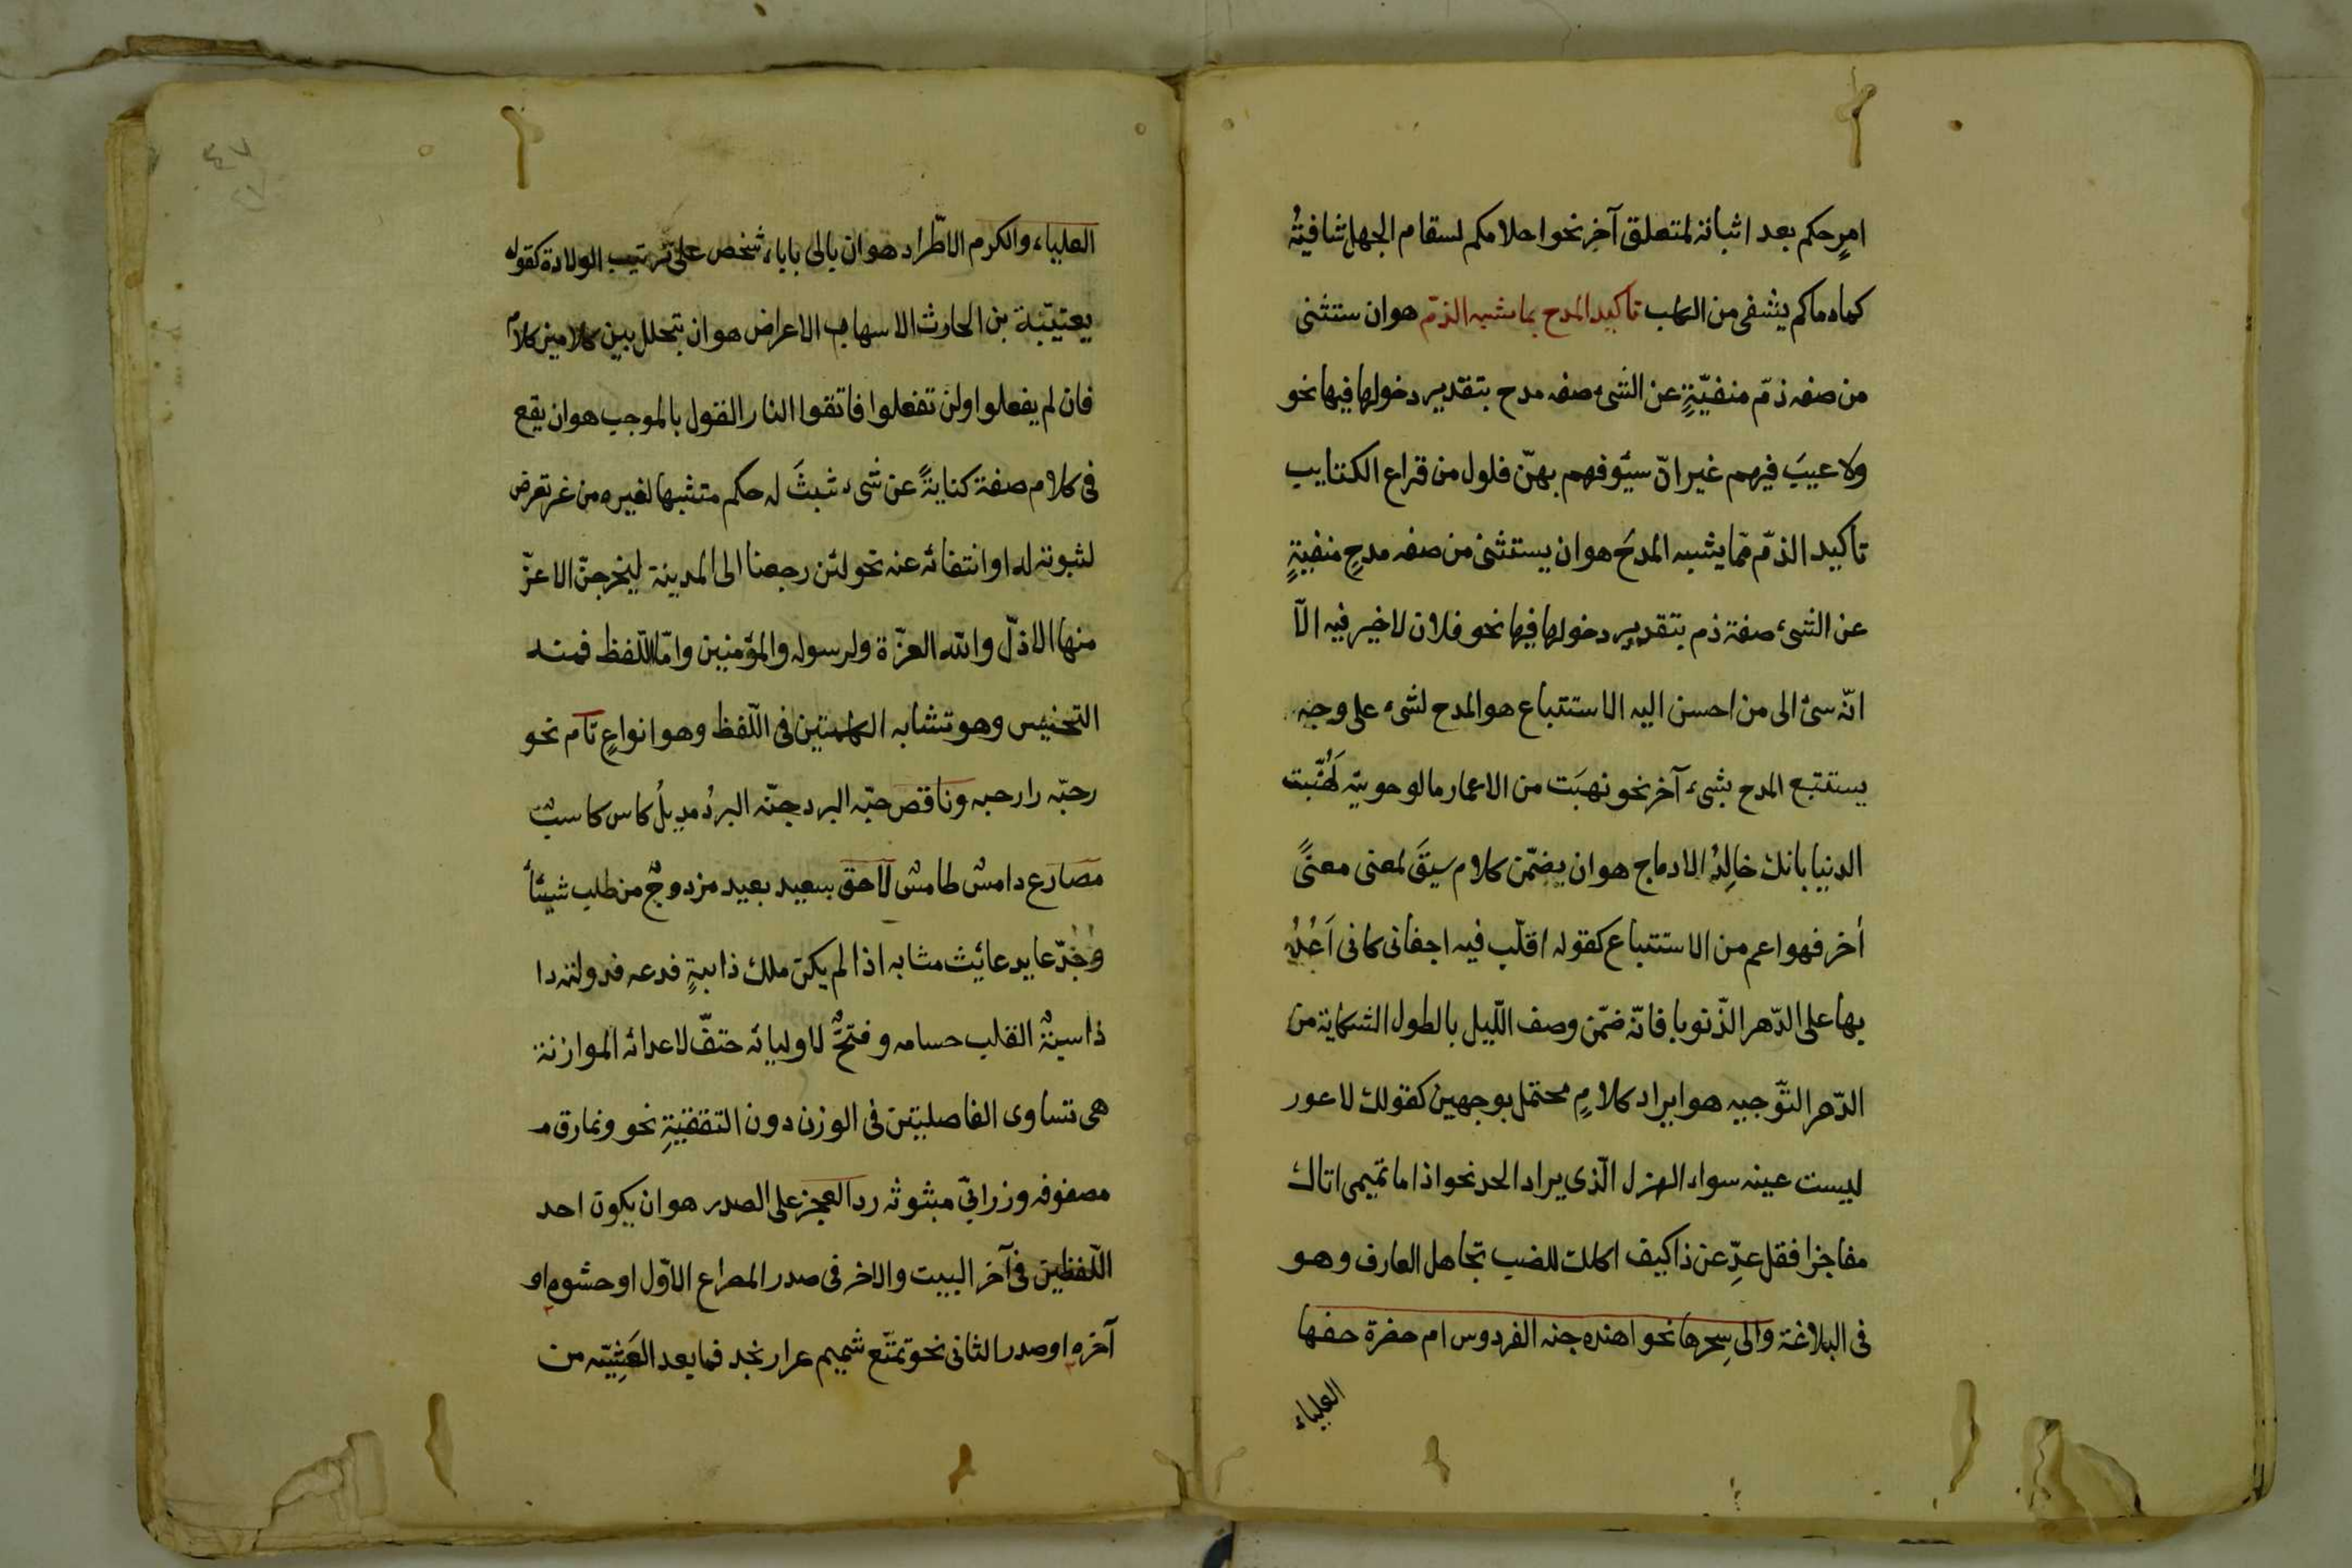 امرٍ حكم بعد اثباته لمتعلق آخر نحو احلامكم لسقام الجهل شافيةُ
كما دماكم يشفى من الكلب تاكيد المدح بما يشبه الذمّ هو ان ستثنى
من صفه ذمّ منفيّةٍ عن الشىء صفه مدح بتقدير دخولها فيها نحو
ولا عيبَ فيهم غير انّ سيُوفهم بهنّ فلول من قراع الكتايب
تاكيد الذمّ ممّا يشبه المدحَ هو ان يستثنىٰ من صفه مدحٍ منفيةٍ
عن الشىء صفة ذم بتقدير دخولها فيها نحو فلان لا خير فيه الّا
انّه سئ الى من احسن اليه الاستتباع هو المدح لشىء على وجه
يستتبع المدح بشىء آخر نحو نهبَت من الاعمار ما لو حويته لَهُنّبت
الدنيا بانك خالِدُ الادماج هو ان يضمّن كلام سيقَ لمعنى معنىً
أخر فهو اعم من الاستتباع كقوله اقلّب فيه اجفانى كانى اَعُدُّ
بها على الدّهر الذّنوبا فانّه ضمّن وصف اللّيل بالطول الشكاية من
الدّهر التّوجيه هو ايراد كلامٍ محتمل بوجهين كقولك لاعور
ليست عينه سواء الهزل الّذى يراد الحد نحو اذا ما تميمى اتاك
مفاجزا فقل عدِّ عن ذا كيف اكلت للضب تجاهل العارف وهو
فى البلاغة والى سِحرها نحو اهنده جنه الفردوس ام حضرة حفها
العلياء
٤٧
العلياء والكرم الاطّراد هو ان يالى بابا، شخص على ترتيب الولادة كقوله
بعتيبّة بن الحارث الاسهاب الاعراض هو ان يتحلل بين كلامين كلام
فان لم يفعلوا ولن تفعلوا فاتقوا النار القول بالموجب هو ان يقع
فى كلام صفة كنايةً عن شىء ثبثَ له حكم متثبها لغيره من غر تعرض
لثبوته له او انتفائه عنه نحو لئن رجعنا الى المدينة ليخرجنّ الاعزّ
منها الاذلّ والله العزّة ولرسوله والمؤمنين وامّا اللّفظ فمنه
التجنيس وهو تشابه الكلمتين فى اللّفظ وهو انواعٍ تام نحو
رحبّه را رحبه وناقص حبّه البرد جنّه البرُد مديلُ كاس كاسبٌ
مصارع دامسٌ طامسٌ لاحق سعيد بعيد مزدوجٌ من طلب شيئاً
وُجُدّ عابد عائث مشابه اذا لم يكن ملك ذا هبةٍ فدعه فدولته دا
ذاسينةٌ القلب حسامه وفتحٌ لاوليائه حتفّ لاعدائه الموازنة
هى تساوى الفاصليتن فى الوزن دون التقفيةِ نحو ونمارق مـ
مصفوفه وزرابىّ مبثوثه رد العجز على الصدر هو ان يكون احد
اللّفظين فى آخر البيت والاخر فى صدر المصراع الاوّل او حشوه او
آخره او صدر الثانى نحو تمتّع شميم عرار نجد فما بعد العَشِيّه من